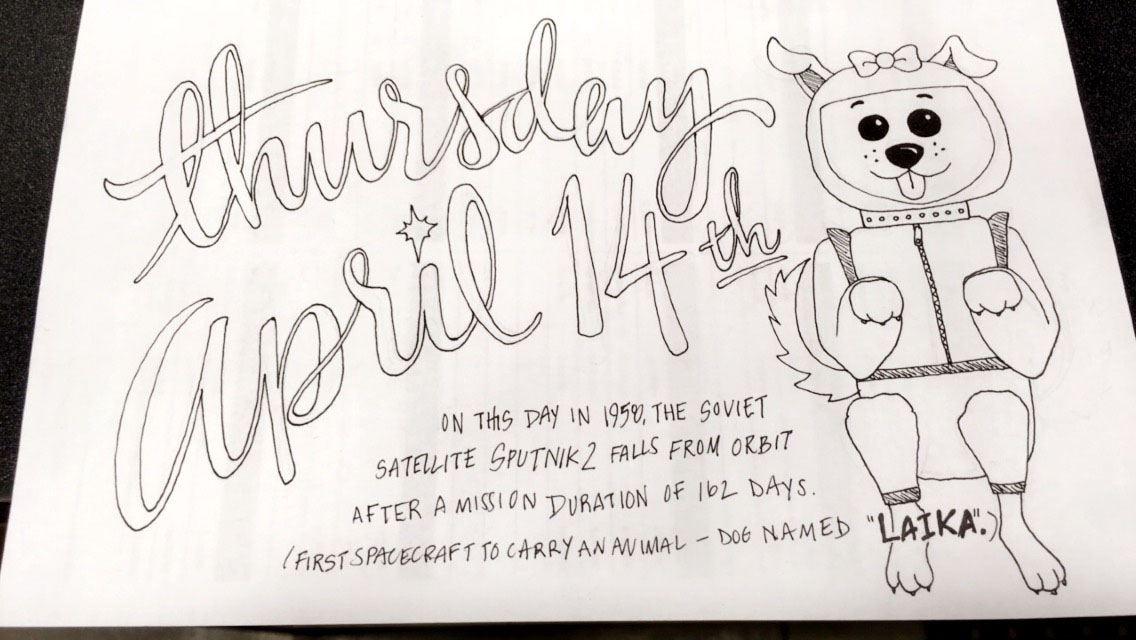 thursday
april 14th
ON THIS DAY IN 1958, THE SOVIET
SATELLITE SPUTNIK 2 FALLS FROM ORBIT
AFTER A MISSION DURATION OF 162 DAYS.
(FIRST SPACECRAFT TO CARRY AN ANIMAL – DOG NAMED "LAIKA".)